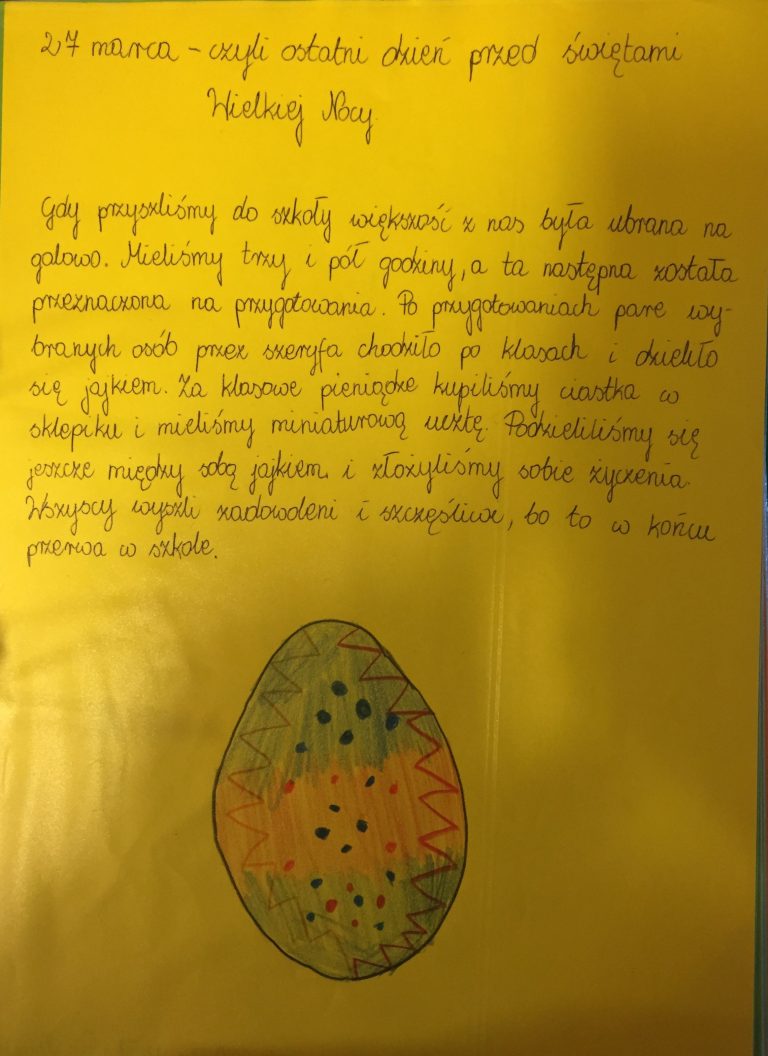 27 marca - czyli ostatni dzień przed świętami
Wielkiej Nocy
Gdy przyszliśmy do szkoły większość z nas była ubrana na
galowo. Mieliśmy trzy i pół godziny, a ta następna została
przeznaczona na przygotowania. Po przygotowaniach pare wy-
branych osób przez szeryfa chodziło po klasach i dzieliło
się jajkiem. Za klasowe pieniądze kupiliśmy ciastka w
sklepiku i mieliśmy miniaturową ucztę. Podzieliliśmy się
jeszcze między sobą jajkiem i złożyliśmy sobie życzenia.
Wszyscy wyszli zadowoleni i szczęśliwi, bo to w końcu
przerwa w szkole.